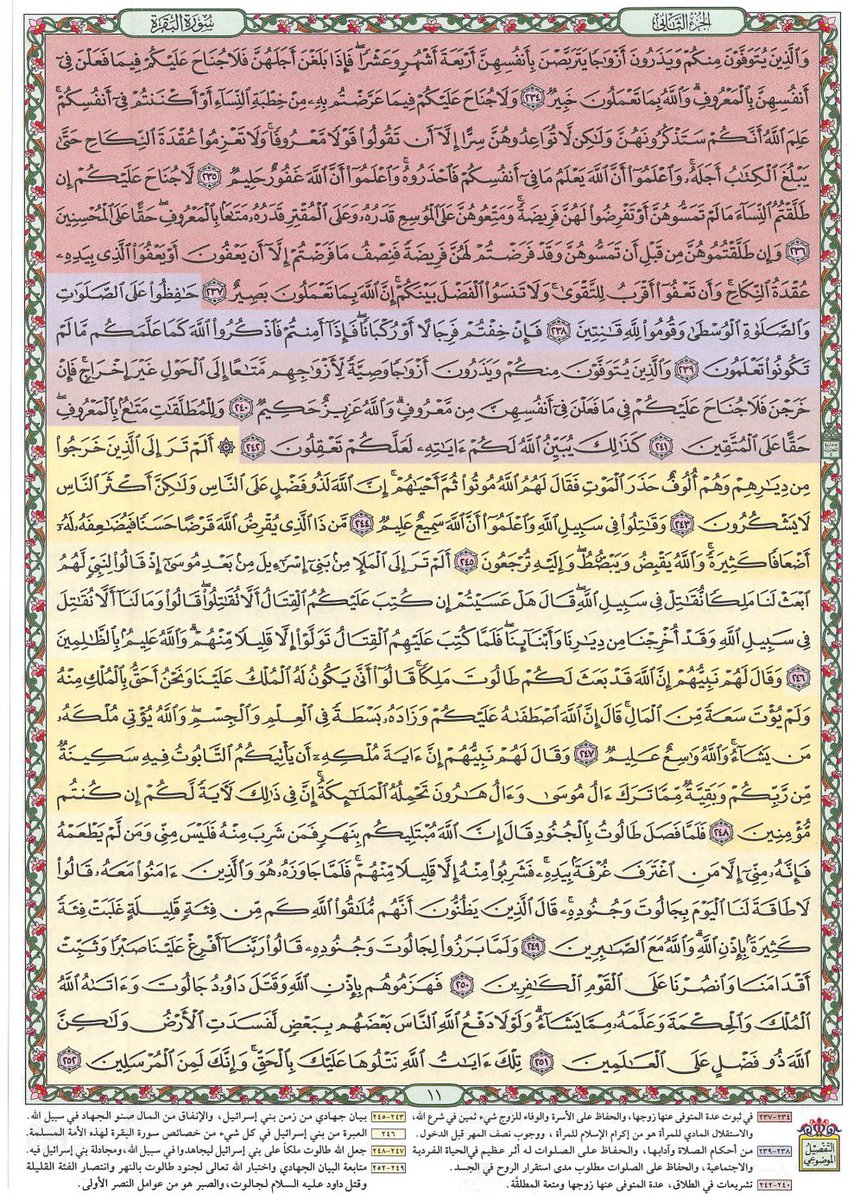 الجزء الثاني
سورة البقرة
وَالَّذِينَ يُتَوَفَّوْنَ مِنكُمْ وَيَذَرُونَ أَزْوَاجًا يَتَرَبَّصْنَ بِأَنفُسِهِنَّ أَرْبَعَةَ أَشْهُرٍ وَعَشْرًا ۖ فَإِذَا بَلَغْنَ أَجَلَهُنَّ فَلَا جُنَاحَ عَلَيْكُمْ فِيمَا فَعَلْنَ فِي
أَنفُسِهِنَّ بِالْمَعْرُوفِ ۗ وَاللَّهُ بِمَا تَعْمَلُونَ خَبِيرٌ ٢٣٤ وَلَا جُنَاحَ عَلَيْكُمْ فِيمَا عَرَّضْتُم بِهِ مِنْ خِطْبَةِ النِّسَاءِ أَوْ أَكْنَنتُمْ فِي أَنفُسِكُمْ ۚ
عَلِمَ اللَّهُ أَنَّكُمْ سَتَذْكُرُونَهُنَّ وَلَٰكِن لَّا تُوَاعِدُوهُنَّ سِرًّا إِلَّا أَن تَقُولُوا قَوْلًا مَّعْرُوفًا ۚ وَلَا تَعْزِمُوا عُقْدَةَ النِّكَاحِ حَتَّىٰ
يَبْلُغَ الْكِتَابُ أَجَلَهُ ۚ وَاعْلَمُوا أَنَّ اللَّهَ يَعْلَمُ مَا فِي أَنفُسِكُمْ فَاحْذَرُوهُ ۚ وَاعْلَمُوا أَنَّ اللَّهَ غَفُورٌ حَلِيمٌ ٢٣٥ لَّا جُنَاحَ عَلَيْكُمْ إِن
طَلَّقْتُمُ النِّسَاءَ مَا لَمْ تَمَسُّوهُنَّ أَوْ تَفْرِضُوا لَهُنَّ فَرِيضَةً ۚ وَمَتِّعُوهُنَّ عَلَى الْمُوسِعِ قَدَرُهُ وَعَلَى الْمُقْتِرِ قَدَرُهُ مَتَاعًا بِالْمَعْرُوفِ ۖ حَقًّا عَلَى الْمُحْسِنِينَ
٢٣٦ وَإِن طَلَّقْتُمُوهُنَّ مِن قَبْلِ أَن تَمَسُّوهُنَّ وَقَدْ فَرَضْتُمْ لَهُنَّ فَرِيضَةً فَنِصْفُ مَا فَرَضْتُمْ إِلَّا أَن يَعْفُونَ أَوْ يَعْفُوَا الَّذِي بِيَدِهِ
عُقْدَةُ النِّكَاحِ ۚ وَأَن تَعْفُوا أَقْرَبُ لِلتَّقْوَىٰ ۚ وَلَا تَنسَوُا الْفَضْلَ بَيْنَكُمْ ۚ إِنَّ اللَّهَ بِمَا تَعْمَلُونَ بَصِيرٌ ٢٣٧ حَافِظُوا عَلَى الصَّلَوَاتِ
وَالصَّلَاةِ الْوُسْطَىٰ وَقُومُوا لِلَّهِ قَانِتِينَ ٢٣٨ فَإِنْ خِفْتُمْ فَرِجَالًا أَوْ رُكْبَانًا ۖ فَإِذَا أَمِنتُمْ فَاذْكُرُوا اللَّهَ كَمَا عَلَّمَكُم مَّا لَمْ
تَكُونُوا تَعْلَمُونَ ٢٣٩ وَالَّذِينَ يُتَوَفَّوْنَ مِنكُمْ وَيَذَرُونَ أَزْوَاجًا وَصِيَّةً لِّأَزْوَاجِهِم مَّتَاعًا إِلَى الْحَوْلِ غَيْرَ إِخْرَاجٍ ۚ فَإِنْ
خَرَجْنَ فَلَا جُنَاحَ عَلَيْكُمْ فِي مَا فَعَلْنَ فِي أَنفُسِهِنَّ مِن مَّعْرُوفٍ ۗ وَاللَّهُ عَزِيزٌ حَكِيمٌ ٢٤٠ وَلِلْمُطَلَّقَاتِ مَتَاعٌ بِالْمَعْرُوفِ ۖ
حَقًّا عَلَى الْمُتَّقِينَ ٢٤١ كَذَٰلِكَ يُبَيِّنُ اللَّهُ لَكُمْ آيَاتِهِ لَعَلَّكُمْ تَعْقِلُونَ ٢٤٢ ۞ أَلَمْ تَرَ إِلَى الَّذِينَ خَرَجُوا
مِن دِيَارِهِمْ وَهُمْ أُلُوفٌ حَذَرَ الْمَوْتِ فَقَالَ لَهُمُ اللَّهُ مُوتُوا ثُمَّ أَحْيَاهُمْ ۚ إِنَّ اللَّهَ لَذُو فَضْلٍ عَلَى النَّاسِ وَلَٰكِنَّ أَكْثَرَ النَّاسِ
لَا يَشْكُرُونَ ٢٤٣ وَقَاتِلُوا فِي سَبِيلِ اللَّهِ وَاعْلَمُوا أَنَّ اللَّهَ سَمِيعٌ عَلِيمٌ ٢٤٤ مَّن ذَا الَّذِي يُقْرِضُ اللَّهَ قَرْضًا حَسَنًا فَيُضَاعِفَهُ لَهُ
أَضْعَافًا كَثِيرَةً ۚ وَاللَّهُ يَقْبِضُ وَيَبْصُطُ وَإِلَيْهِ تُرْجَعُونَ ٢٤٥ أَلَمْ تَرَ إِلَى الْمَلَإِ مِن بَنِي إِسْرَائِيلَ مِن بَعْدِ مُوسَىٰ إِذْ قَالُوا لِنَبِيٍّ لَّهُمُ
ابْعَثْ لَنَا مَلِكًا نُّقَاتِلْ فِي سَبِيلِ اللَّهِ ۖ قَالَ هَلْ عَسَيْتُمْ إِن كُتِبَ عَلَيْكُمُ الْقِتَالُ أَلَّا تُقَاتِلُوا ۖ قَالُوا وَمَا لَنَا أَلَّا نُقَاتِلَ
فِي سَبِيلِ اللَّهِ وَقَدْ أُخْرِجْنَا مِن دِيَارِنَا وَأَبْنَائِنَا ۖ فَلَمَّا كُتِبَ عَلَيْهِمُ الْقِتَالُ تَوَلَّوْا إِلَّا قَلِيلًا مِّنْهُمْ ۗ وَاللَّهُ عَلِيمٌ بِالظَّالِمِينَ
٢٤٦ وَقَالَ لَهُمْ نَبِيُّهُمْ إِنَّ اللَّهَ قَدْ بَعَثَ لَكُمْ طَالُوتَ مَلِكًا ۚ قَالُوا أَنَّىٰ يَكُونُ لَهُ الْمُلْكُ عَلَيْنَا وَنَحْنُ أَحَقُّ بِالْمُلْكِ مِنْهُ
وَلَمْ يُؤْتَ سَعَةً مِّنَ الْمَالِ ۚ قَالَ إِنَّ اللَّهَ اصْطَفَاهُ عَلَيْكُمْ وَزَادَهُ بَسْطَةً فِي الْعِلْمِ وَالْجِسْمِ ۖ وَاللَّهُ يُؤْتِي مُلْكَهُ
مَن يَشَاءُ ۚ وَاللَّهُ وَاسِعٌ عَلِيمٌ ٢٤٧ وَقَالَ لَهُمْ نَبِيُّهُمْ إِنَّ آيَةَ مُلْكِهِ أَن يَأْتِيَكُمُ التَّابُوتُ فِيهِ سَكِينَةٌ
مِّن رَّبِّكُمْ وَبَقِيَّةٌ مِّمَّا تَرَكَ آلُ مُوسَىٰ وَآلُ هَارُونَ تَحْمِلُهُ الْمَلَائِكَةُ ۚ إِنَّ فِي ذَٰلِكَ لَآيَةً لَّكُمْ إِن كُنتُم
مُّؤْمِنِينَ ٢٤٨ فَلَمَّا فَصَلَ طَالُوتُ بِالْجُنُودِ قَالَ إِنَّ اللَّهَ مُبْتَلِيكُم بِنَهَرٍ فَمَن شَرِبَ مِنْهُ فَلَيْسَ مِنِّي وَمَن لَّمْ يَطْعَمْهُ
فَإِنَّهُ مِنِّي إِلَّا مَنِ اغْتَرَفَ غُرْفَةً بِيَدِهِ ۚ فَشَرِبُوا مِنْهُ إِلَّا قَلِيلًا مِّنْهُمْ ۚ فَلَمَّا جَاوَزَهُ هُوَ وَالَّذِينَ آمَنُوا مَعَهُ قَالُوا
لَا طَاقَةَ لَنَا الْيَوْمَ بِجَالُوتَ وَجُنُودِهِ ۚ قَالَ الَّذِينَ يَظُنُّونَ أَنَّهُم مُّلَاقُو اللَّهِ كَم مِّن فِئَةٍ قَلِيلَةٍ غَلَبَتْ فِئَةً
كَثِيرَةً بِإِذْنِ اللَّهِ ۗ وَاللَّهُ مَعَ الصَّابِرِينَ ٢٤٩ وَلَمَّا بَرَزُوا لِجَالُوتَ وَجُنُودِهِ قَالُوا رَبَّنَا أَفْرِغْ عَلَيْنَا صَبْرًا وَثَبِّتْ
أَقْدَامَنَا وَانصُرْنَا عَلَى الْقَوْمِ الْكَافِرِينَ ٢٥٠ فَهَزَمُوهُم بِإِذْنِ اللَّهِ وَقَتَلَ دَاوُودُ جَالُوتَ وَآتَاهُ اللَّهُ
الْمُلْكَ وَالْحِكْمَةَ وَعَلَّمَهُ مِمَّا يَشَاءُ ۗ وَلَوْلَا دَفْعُ اللَّهِ النَّاسَ بَعْضَهُم بِبَعْضٍ لَّفَسَدَتِ الْأَرْضُ وَلَٰكِنَّ
اللَّهَ ذُو فَضْلٍ عَلَى الْعَالَمِينَ ٢٥١ تِلْكَ آيَاتُ اللَّهِ نَتْلُوهَا عَلَيْكَ بِالْحَقِّ ۚ وَإِنَّكَ لَمِنَ الْمُرْسَلِينَ ٢٥٢
١١
التفصيل الموضوعي
٢٣٤-٢٣٧ في ثبوت عدة المتوفى عنها زوجها، والحفاظ على الأسرة والوفاء للزوج شيء ثمين في شرع الله،
والاستقلال المادي للمرأة هو من إكرام الإسلام للمرأة ، ووجوب نصف المهر قبل الدخول.
٢٣٨-٢٣٩ من أحكام الصلاة وآدابها، والحفاظ على الصلوات له أثر عظيم في الحياة الفردية
والاجتماعية، والحفاظ على الصلوات مطلوب مدى استقرار الروح في الجسد.
٢٤٠-٢٤٢ تشريعات في الطلاق، عدة المتوفى عنها زوجها ومتعة المطلقة.
٢٤٣-٢٤٥ بيان جهادي من زمن بني إسرائيل، والإنفاق من المال صنو الجهاد في سبيل الله.
٢٤٦ العبرة من بني إسرائيل في كل شيء من خصائص سورة البقرة لهذه الأمة المسلمة.
٢٤٧-٢٤٨ جعل الله طالوت ملكاً على بني إسرائيل ليجاهدوا في سبيل الله،ومجادلة بني إسرائيل فيه.
٢٤٩-٢٥٢ متابعة البيان الجهادي واختبار الله تعالى لجنود طالوت بالنهر وانتصار الفئة القليلة
وقتل داود عليه السلام لجالوت، والصبر هو من عوامل النصر الأولى.